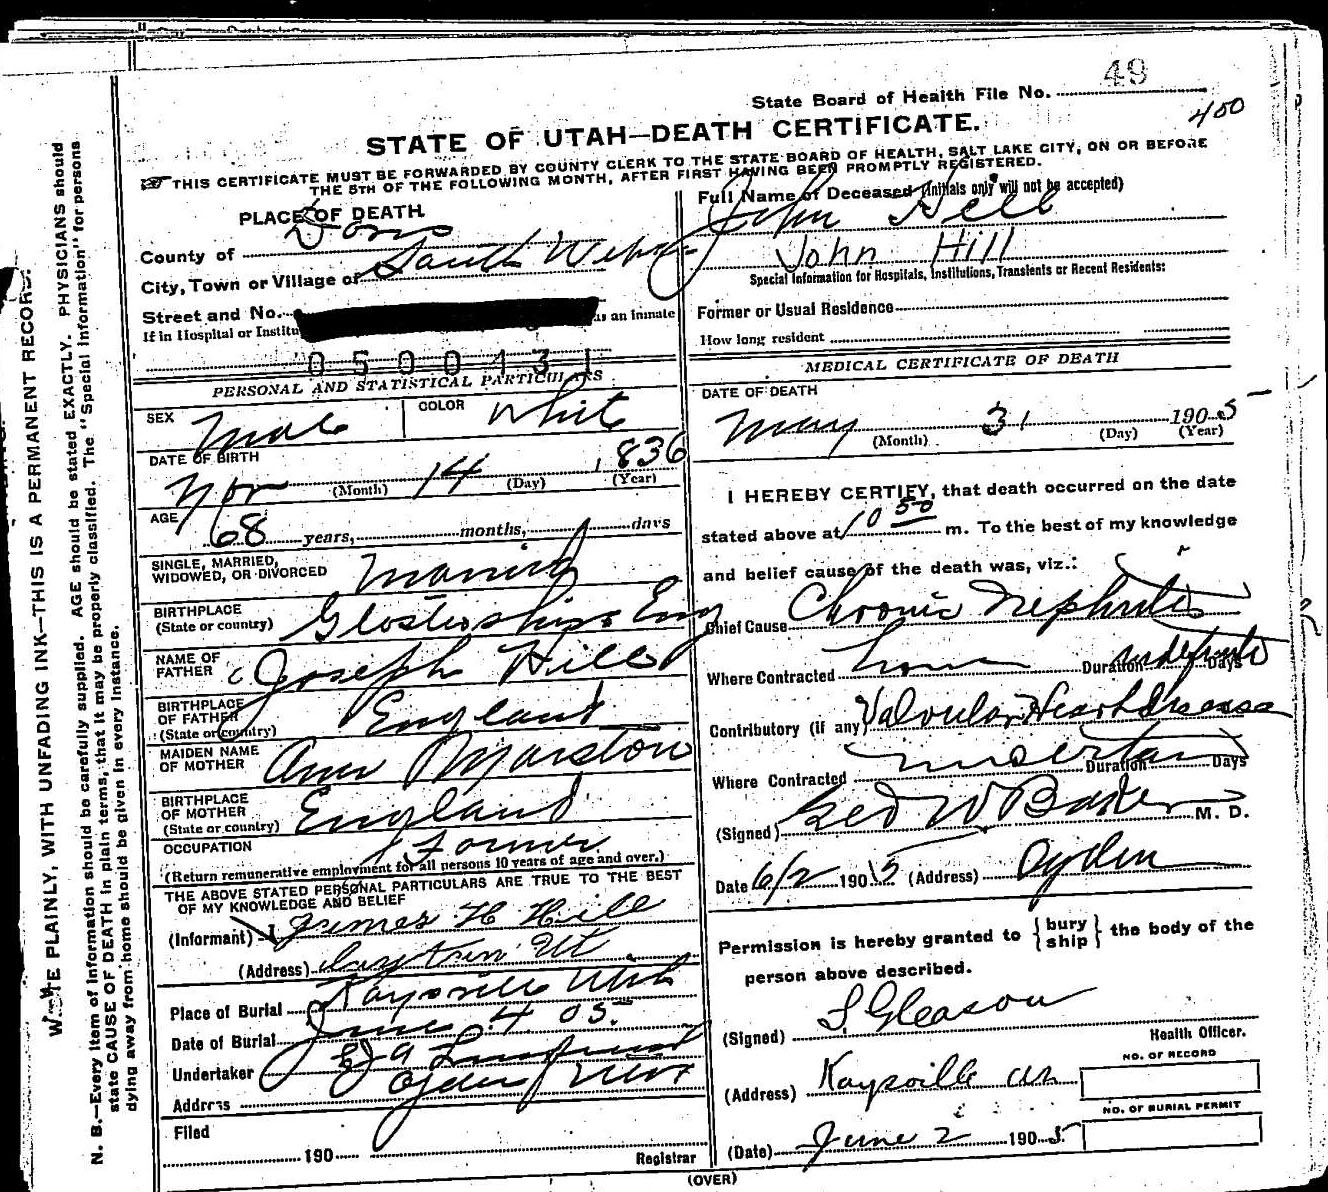 State Board of Health File No. 49
400
STATE OF UTAH—DEATH CERTIFICATE.
THIS CERTIFICATE MUST BE FORWARDED BY COUNTY CLERK TO THE STATE BOARD OF HEALTH, SALT LAKE CITY, ON OR BEFORE
THE 5TH OF THE FOLLOWING MONTH, AFTER FIRST HAVING BEEN PROMPTLY REGISTERED.
PLACE OF DEATH
County of Davis
City, Town or Village of South Weber
Street and No.
If in Hospital or Institu as an inmate
0500431
Full Name of Deceased (Initials only will not be accepted)
John Hill
John Hill
Special Information for Hospitals, Institutions, Transients or Recent Residents:
Former or Usual Residence
How long resident
PERSONAL AND STATISTICAL PARTICULARS
SEX Male COLOR White
DATE OF BIRTH
Nov (Month) 14 (Day) 1836 (Year)
AGE 68 years, months, days
SINGLE, MARRIED,
WIDOWED, OR DIVORCED Married
BIRTHPLACE
(State or country) Glostershire Eng
NAME OF
FATHER Joseph Hill
BIRTHPLACE
OF FATHER
(State or country) England
MAIDEN NAME
OF MOTHER Ann Marston
BIRTHPLACE
OF MOTHER
(State or country) England
OCCUPATION Farmer
(Return remunerative employment for all persons 10 years of age and over.)
THE ABOVE STATED PERSONAL PARTICULARS ARE TRUE TO THE BEST
OF MY KNOWLEDGE AND BELIEF
(Informant) James H Hill
(Address) Layton Ut
Place of Burial Kaysville Utah
Date of Burial June 4 05
Undertaker
Address Ogden Utah
Filed
190
Registrar
MEDICAL CERTIFICATE OF DEATH
DATE OF DEATH
May (Month) 31 (Day) 1905 (Year)
I HEREBY CERTIFY, that death occurred on the date
stated above at 10 50 m. To the best of my knowledge
and belief cause of the death was, viz.:
Chief Cause Chronic Nephritis
Where Contracted home Duration indefinite Days
Contributory (if any) Valvular Heart Disease
Where Contracted uncertain Duration Days
(Signed) Geo W Baker M. D.
Date 6/2 1905 (Address) Ogden
Permission is hereby granted to { bury
ship } the body of the
person above described.
(Signed) S. Gleason
Health Officer.
(Address) Kaysville
NO. OF RECORD
NO. OF BURIAL PERMIT
(Date) June 2 1905
(OVER)
WRITE PLAINLY, WITH UNFADING INK—THIS IS A PERMANENT RECORD.
N. B.—Every item of information should be carefully supplied. AGE should be stated EXACTLY. PHYSICIANS should
state CAUSE OF DEATH in plain terms, that it may be properly classified. The "Special Information" for persons
dying away from home should be given in every instance.